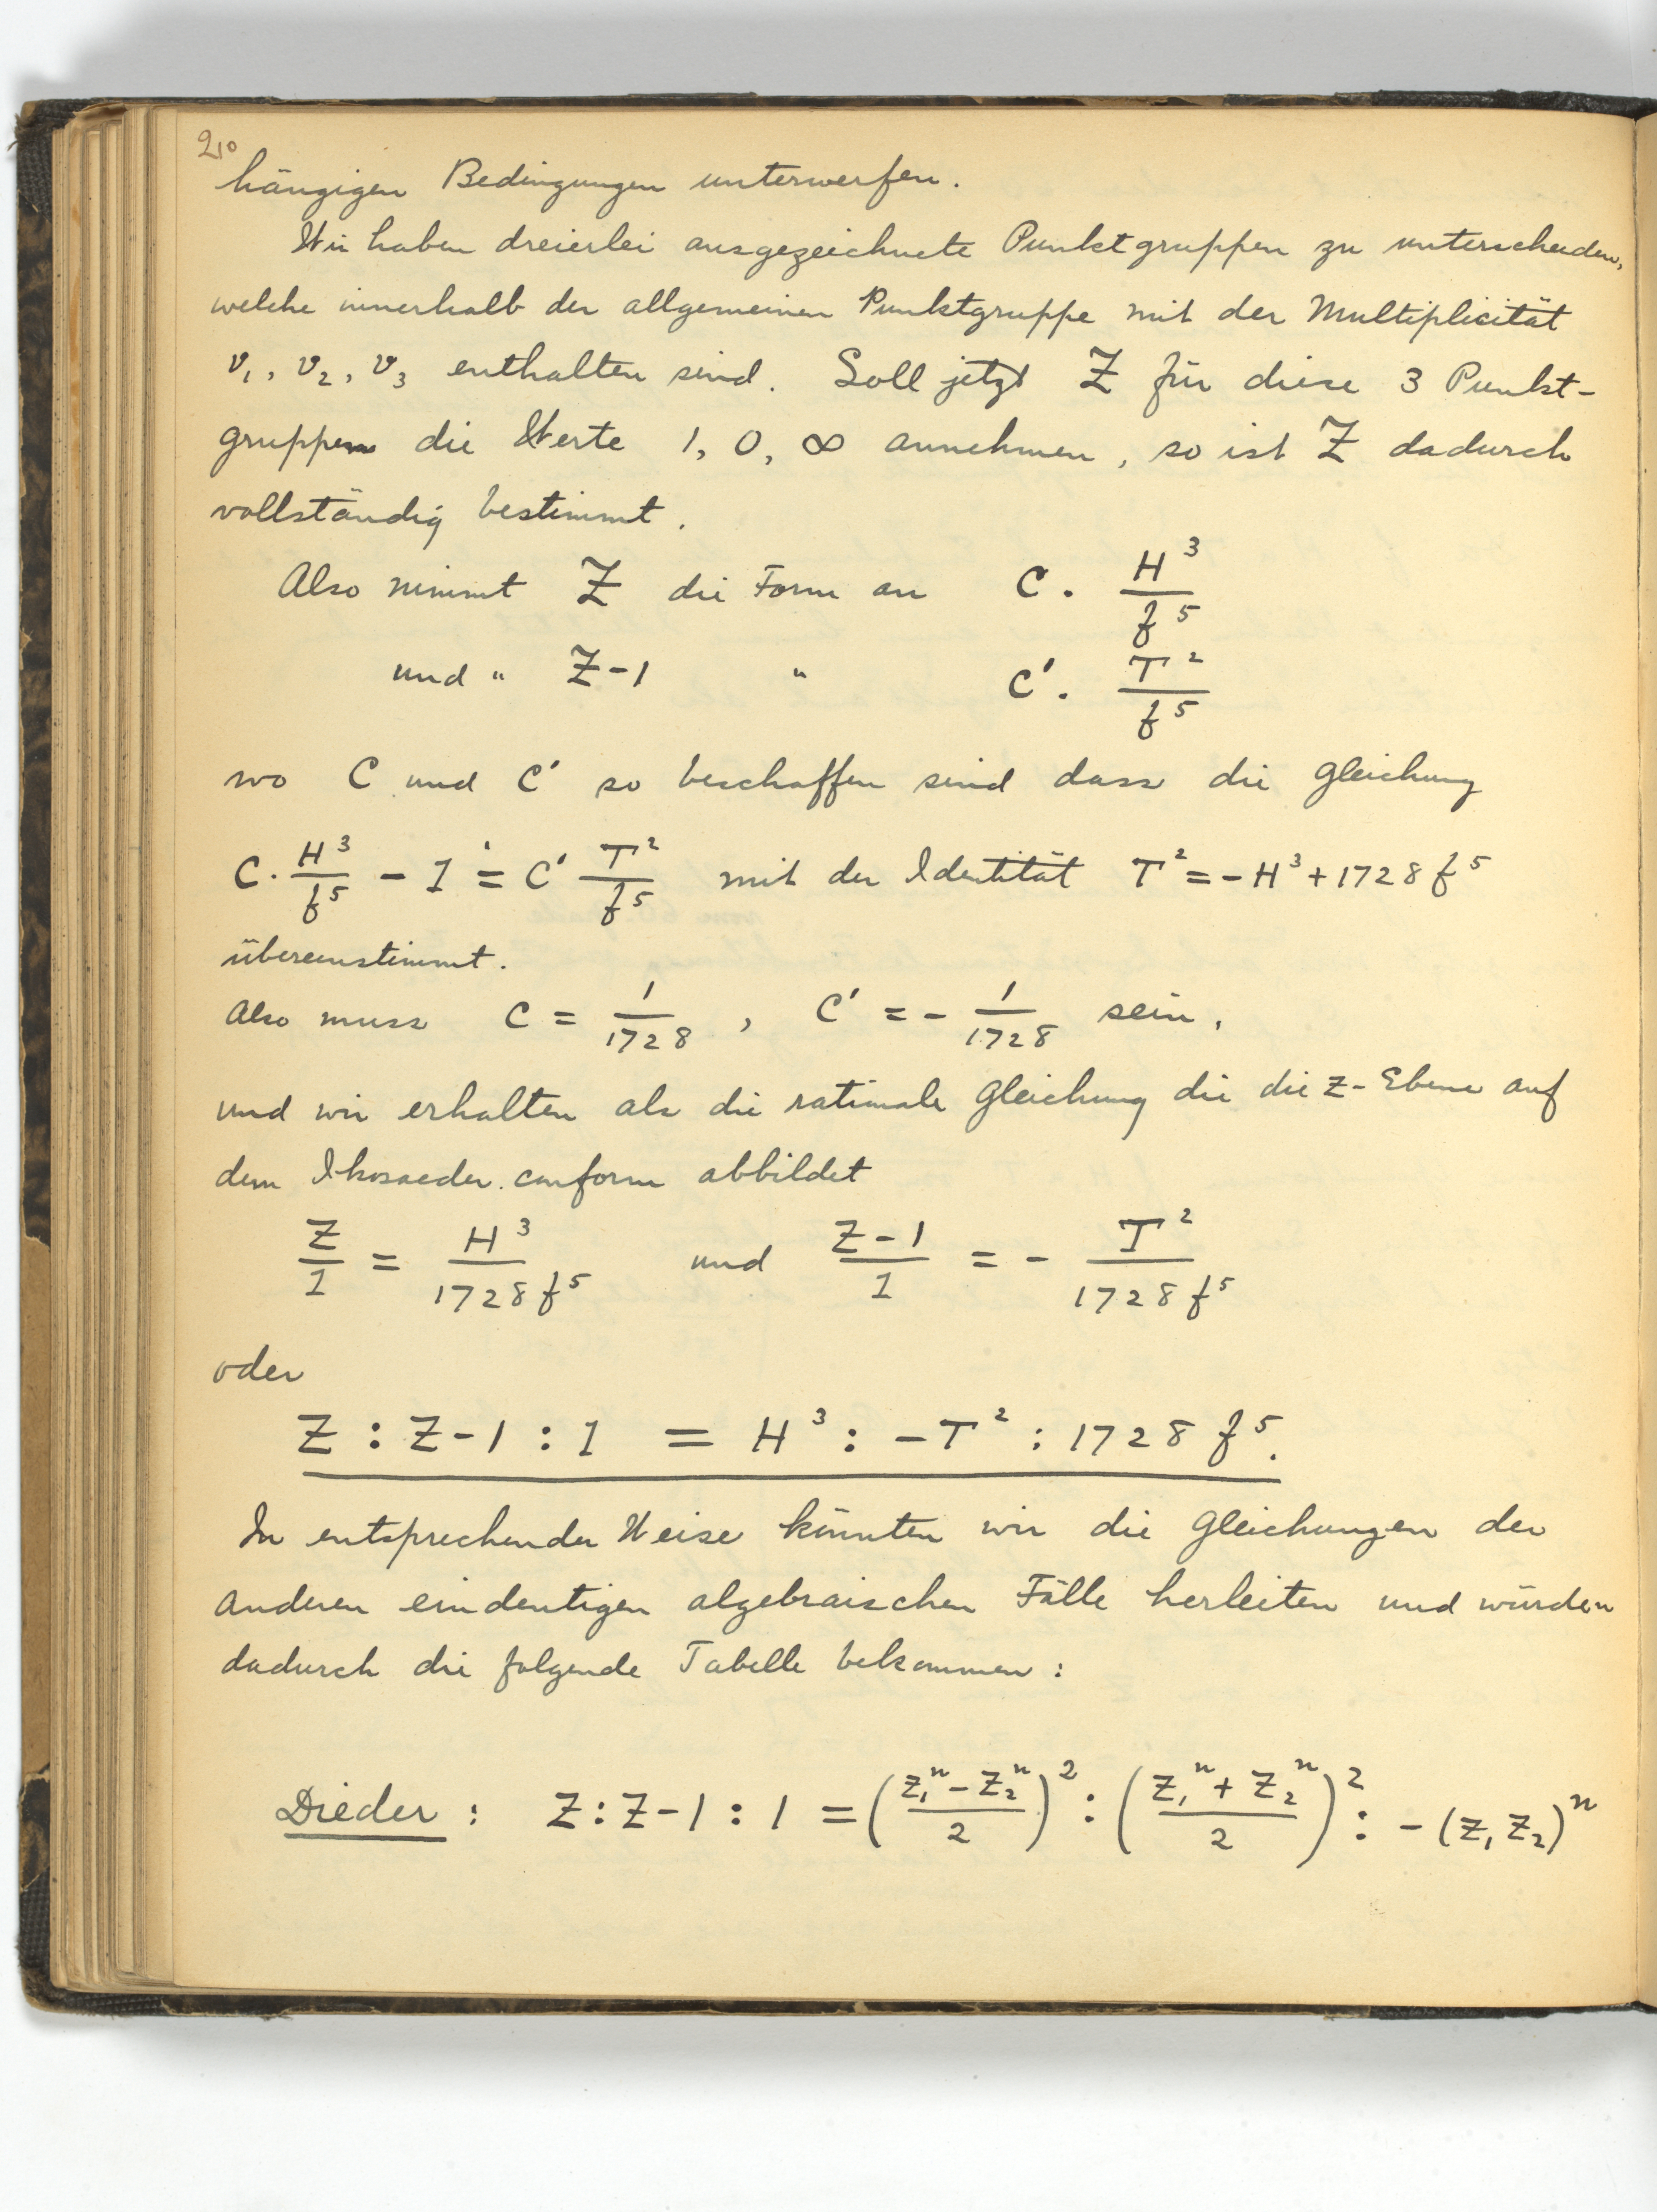 210
hängigen Bedingungen unterwerfen.
Wir haben dreierlei ausgezeichnete Punktgruppen zu unterscheiden,
welche innerhalb der allgemeinen Punktgruppe mit der Multiplicität
ν₁, ν₂, ν₃ enthalten sind. Soll jetzt Z für diese 3 Punkt-
gruppen die Werte 1, 0, ∞ annehmen, so ist Z dadurch
vollständig bestimmt.
Also nimmt Z die Form an C · H³/f⁵
und " Z-1 " C' · T²/f⁵
wo C und C' so beschaffen sind dass die Gleichung
C · H³/f⁵ - 1 = C' T²/f⁵ mit der Identität T² = -H³ + 1728 f⁵
übereinstimmt.
Also muss C = 1/1728 , C' = - 1/1728 sein,
und wir erhalten als die rationale Gleichung die die z-Ebene auf
dem Ikosaeder conform abbildet
Z/1 = H³/1728 f⁵ und Z-1/1 = - T²/1728 f⁵
oder
Z : Z-1 : 1 = H³ : -T² : 1728 f⁵.
In entsprechender Weise könnten wir die Gleichungen der
anderen eindeutigen algebraischen Fälle herleiten und würden
dadurch die folgende Tabelle bekommen:
Dieder : Z : Z-1 : 1 = (z₁ⁿ - z₂ⁿ/2)² : (z₁ⁿ + z₂ⁿ/2)² : -(z₁ z₂)ⁿ